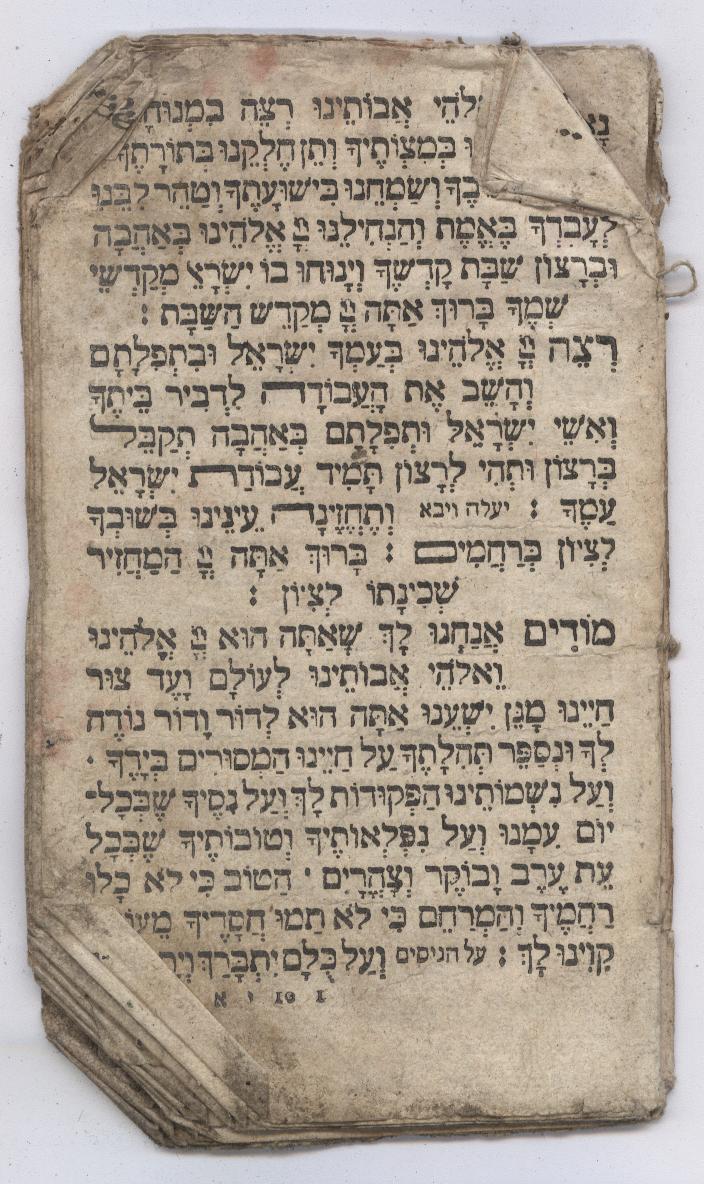 אֲבוֹתֵינוּ רְצֵה בִמְנוּחָ
בְּמִצְוֹתֶיךָ וְתֵן חֶלְקֵנוּ בְּתוֹרָתֶךָ
וְשַׂמְּחֵנוּ בִּישׁוּעָתֶךָ וְטַהֵר לִבֵּנוּ
לְעָבְדְּךָ בֶּאֱמֶת וְהַנְחִילֵנוּ יְיָ אֱלֹהֵינוּ בְּאַהֲבָה
וּבְרָצוֹן שַׁבַּת קָדְשֶׁךָ וְיָנוּחוּ בוֹ יִשְׂרָאֵל מְקַדְּשֵׁי
שְׁמֶךָ בָּרוּךְ אַתָּה יְיָ מְקַדֵּשׁ הַשַּׁבָּת :
רְצֵה יְיָ אֱלֹהֵינוּ בְּעַמְּךָ יִשְׂרָאֵל וּבִתְפִלָּתָם
וְהָשֵׁב אֶת הָעֲבוֹדָה לִדְבִיר בֵּיתֶךָ
וְאִשֵּׁי יִשְׂרָאֵל וּתְפִלָּתָם בְּאַהֲבָה תְקַבֵּל
בְּרָצוֹן וּתְהִי לְרָצוֹן תָּמִיד עֲבוֹדַת יִשְׂרָאֵל
עַמֶּךָ : יעלה ויבא וְתֶחֱזֶינָה עֵינֵינוּ בְּשׁוּבְךָ
לְצִיּוֹן בְּרַחֲמִים : בָּרוּךְ אַתָּה יְיָ הַמַּחֲזִיר
שְׁכִינָתוֹ לְצִיּוֹן :
מוֹדִים אֲנַחְנוּ לָךְ שָׁאַתָּה הוּא יְיָ אֱלֹהֵינוּ
וֵאלֹהֵי אֲבוֹתֵינוּ לְעוֹלָם וָעֶד צוּר
חַיֵּינוּ מָגֵן יִשְׁעֵנוּ אַתָּה הוּא לְדוֹר וָדוֹר נוֹדֶה
לְךָ וּנְסַפֵּר תְּהִלָּתֶךָ עַל חַיֵּינוּ הַמְּסוּרִים בְּיָדֶךָ ·
וְעַל נִשְׁמוֹתֵינוּ הַפְּקוּדוֹת לָךְ וְעַל נִסֶּיךָ שֶׁבְּכָל־
יוֹם עִמָּנוּ וְעַל נִפְלְאוֹתֶיךָ וְטוֹבוֹתֶיךָ שֶׁבְּכָל
עֵת עֶרֶב וָבוֹקֶר וְצָהֳרָיִם · הַטּוֹב כִּי לֹא כָלוּ
רַחֲמֶיךָ וְהַמְרַחֵם כִּי לֹא תַמּוּ חֲסָדֶיךָ מֵעוֹ
קִוִּינוּ לָךְ : על הניסים וְעַל כֻּלָּם יִתְבָּרַךְ